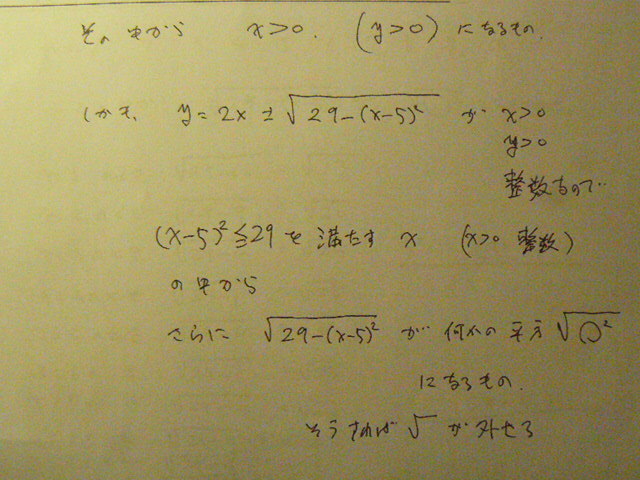 その中から x>0. (y>0) になるもの.
しかも、 y=2x±√29-(x-5)² が x>0
y>0
整数なので…
(x-5)²≦29 を 満たす x (x>0 整数)
の中から
さらに √29-(x-5)² が 何かの平方 √○²
になるもの.
そうすれば √ が外せる